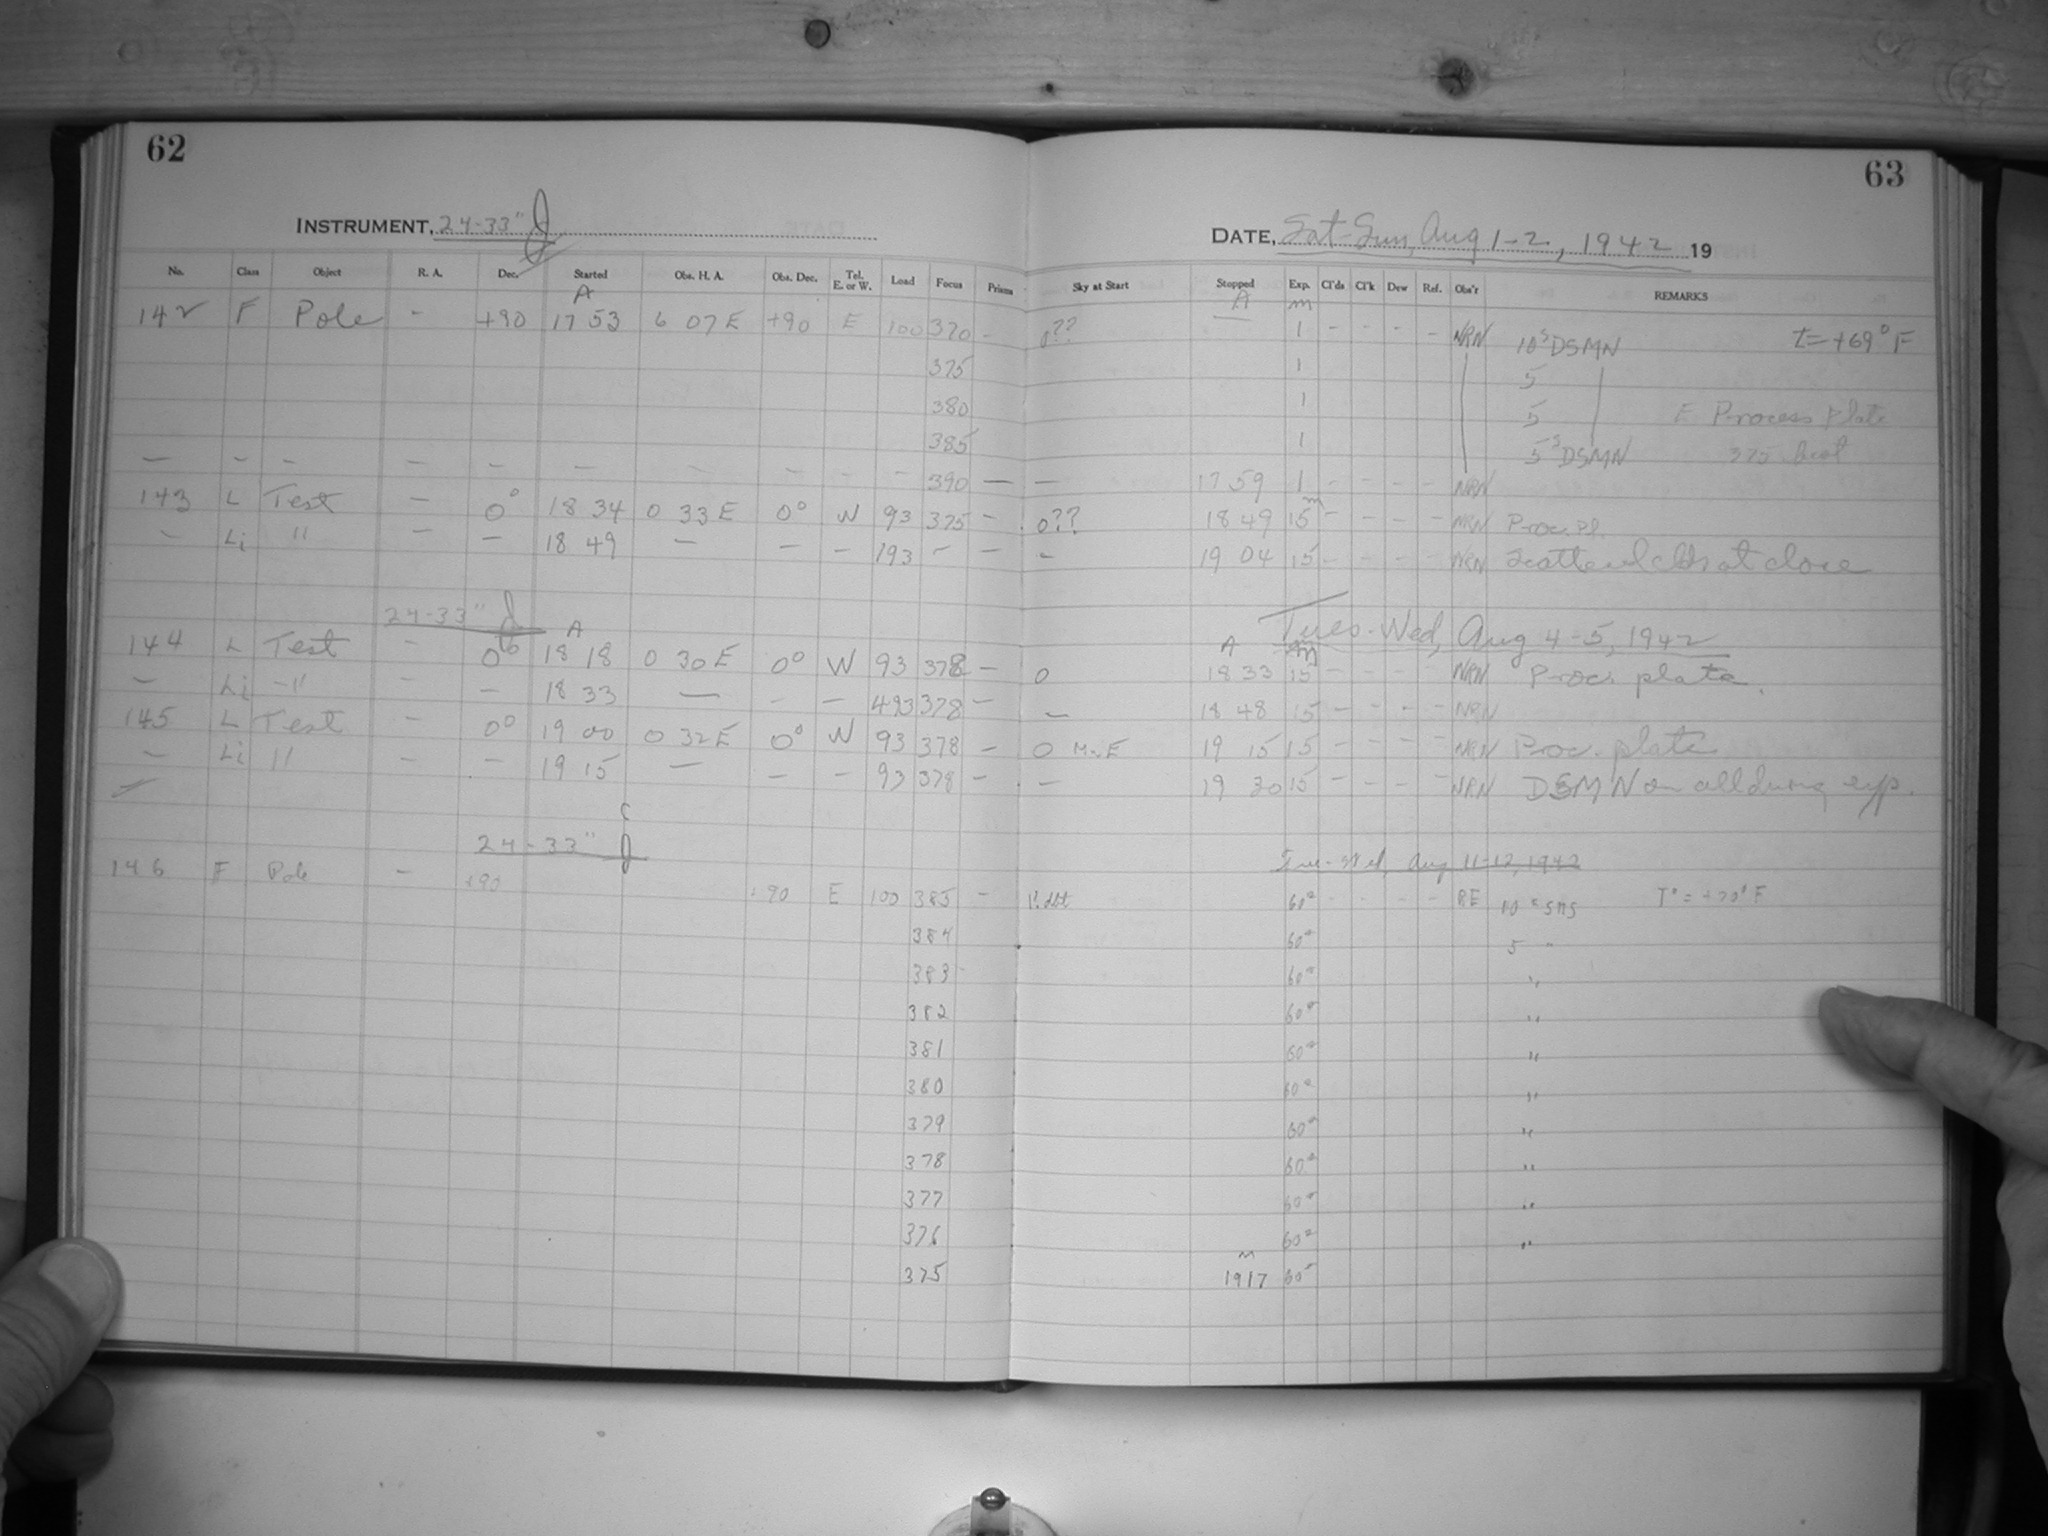 62
63
INSTRUMENT, 24-33" J
DATE, Sat-Sun, Aug 1-2, 1942 19
No. Class Object R. A. Dec. Started Obs. H. A. Obs. Dec. Tel. E. or W. Load Focus Prisms Sky at Start Stopped Exp. Cl'ds Cl'k Dew Ref. Obs'r REMARKS
A A m
142 F Pole - +90 17 53 6 07 E +90 E 100 370 - 0?? 1 - - - - NRN 10s DSMN t=+69° F
375 1 5
380 1 5 Process Plate
385 1 5s DSMN 375 best
— - - — - — - - - - 390 — — 17 59 1 - - - - NRN
143 L Test — 0° 18 34 0 33 E 0° W 93 375 - 0?? 18 49 15m - - - - NRN Proc. Pl.
- Li " — — 18 49 — — — 193 - — - 19 04 15 - - - - NRN Scattered clds at close
24-33" J Tues-Wed, Aug 4-5, 1942
A A m
144 L Test - 0° 18 18 0 30 E 0° W 93 378 - 0 18 33 15 - - - - NRN Procs plate.
- Li " - - 18 33 — - — 493 378 - — 18 48 15 - - - - NRN
145 L Test - 0° 19 00 0 32 E 0° W 93 378 - 0 M-E 19 15 15 - - - - NRN Proc. plate
- Li " - - 19 15 — - - 93 378 - — 19 30 15 - - - - NRN DSMN on all during exp.
24-33" J Tue-Wed, Aug 11-12, 1942
146 F Pole - +90 +90 E 100 385 - 60s - - - - RE 10s SMS T° = +70° F
384 60s 5 "
383 60s "
382 60s "
381 60s "
380 60s "
379 60s "
378 60s "
377 60s "
376 60s "
m
375 1917 60s